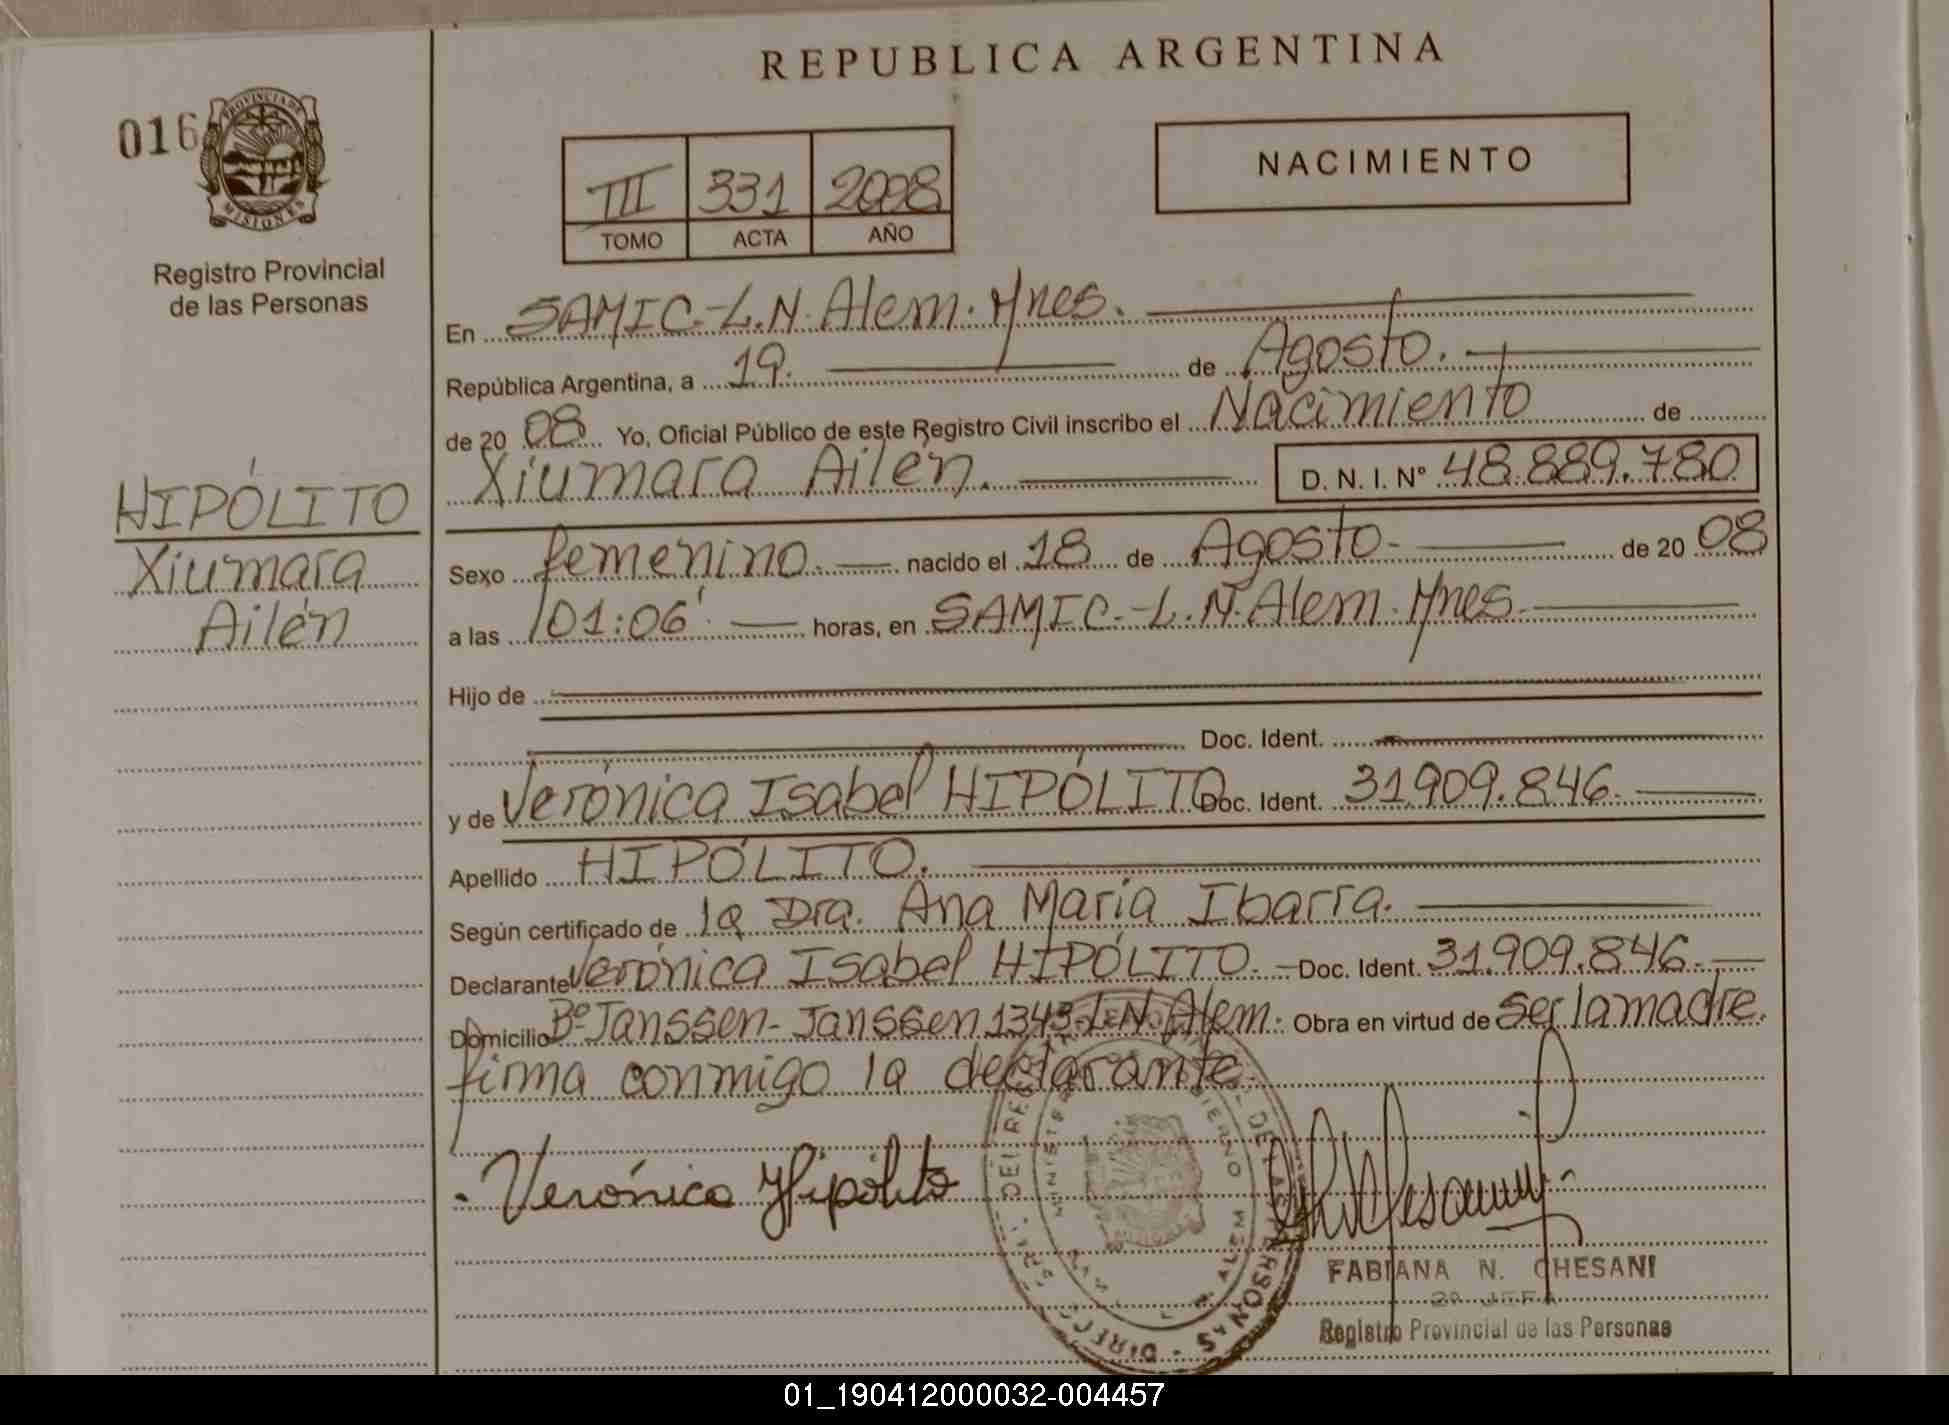 REPUBLICA ARGENTINA
016
PROVINCIA DE
MISIONES
Registro Provincial
de las Personas
III 331 2008
TOMO ACTA AÑO
NACIMIENTO
HIPÓLITO
Xiumara
Ailén
En SAMIC.-L.N.Alem.Mnes.
República Argentina, a 19. de Agosto.
de 20 08 Yo, Oficial Público de este Registro Civil inscribo el Nacimiento de
Xiumara Ailén. D. N. I. Nº 48.889.780
Sexo femenino. nacido el 18 de Agosto- de 20 08
a las 01:06' horas, en SAMIC.-L.N.Alem.Mnes.
Hijo de
Doc. Ident.
y de Verónica Isabel HIPÓLITO Doc. Ident. 31.909.846.
Apellido HIPÓLITO.
Según certificado de la Dra. Ana María Ibarra.
Declarante Verónica Isabel HIPÓLITO. Doc. Ident. 31.909.846.
Domicilio Bº Janssen-Janssen 1343-L.N.Alem. Obra en virtud de ser la madre.
firma conmigo la declarante.
Verónica Hipólito
FABIANA N. CHESANI
2º JEFA
Registro Provincial de las Personas
01_190412000032-004457